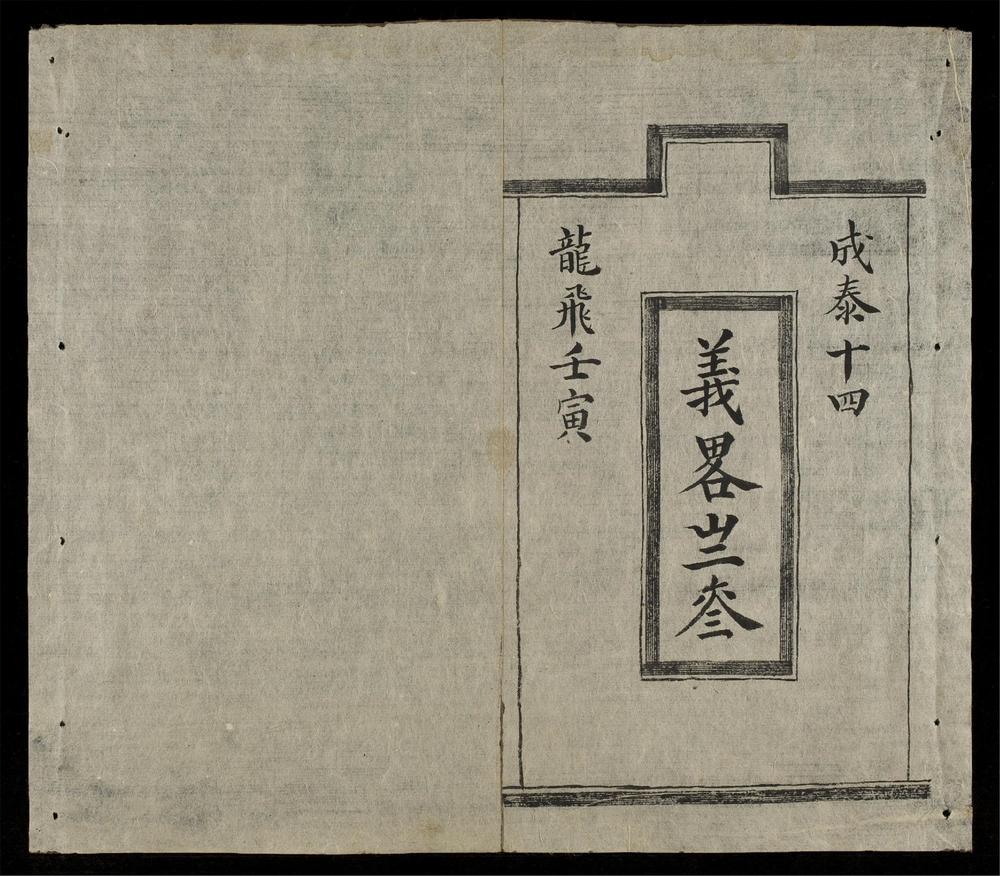 成泰十四
義畧亗叁
龍飛壬寅